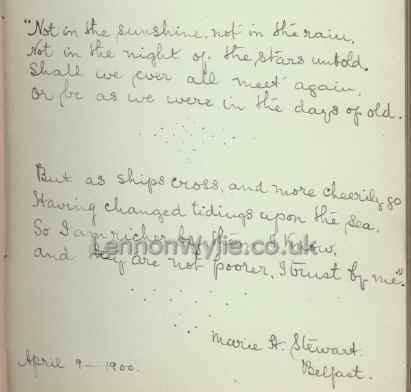 "Not in the sunshine, not in the rain,
Not in the night of the stars untold,
Shall we ever all meet again,
Or be as we were in the days of old.
But as ships cross, and more cheerily go
Having changed tidings upon the sea,
So I am richer by them I know,
and they are not poorer, I trust by me".
LennonWylie.co.uk
Marie H. Stewart.
Belfast.
April 9 - 1900.